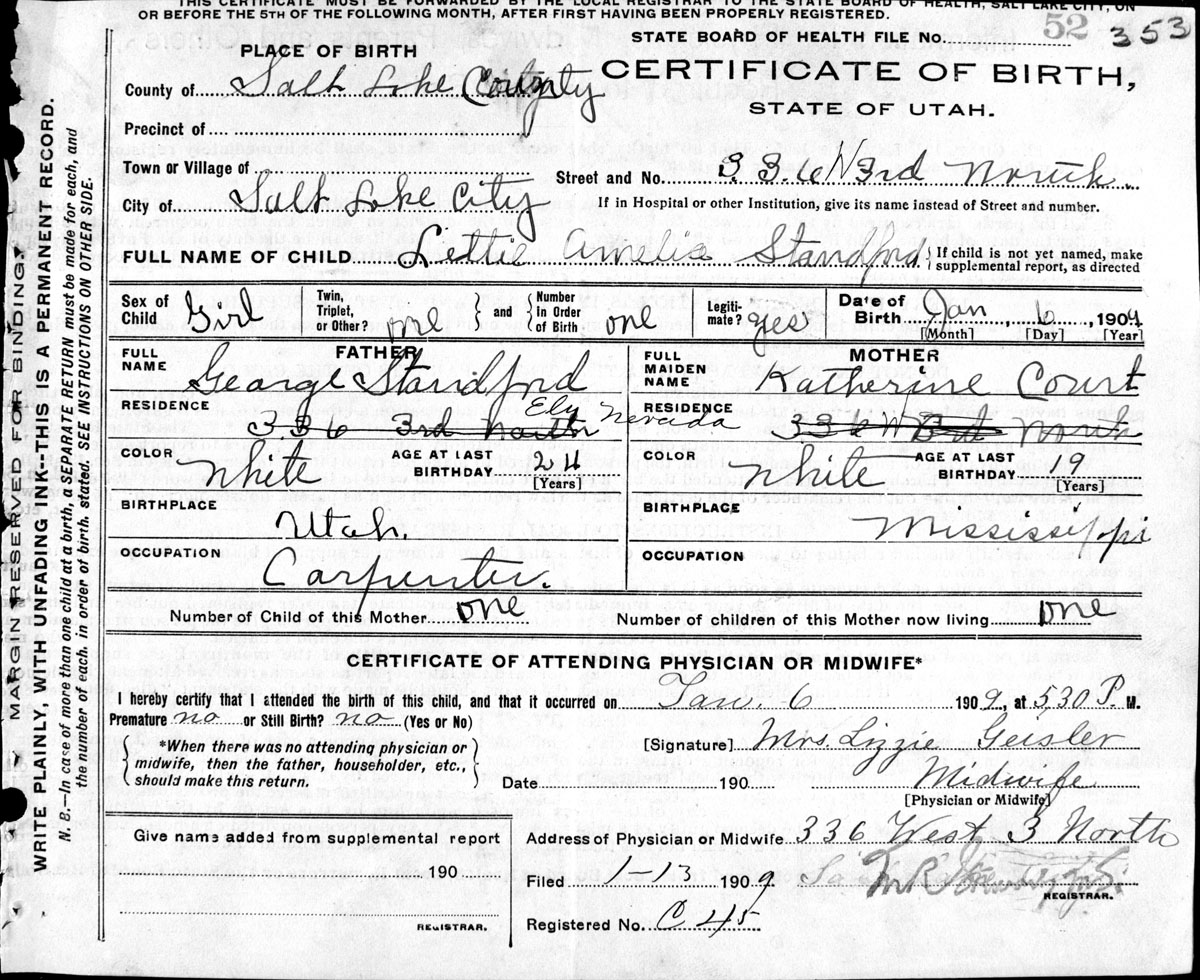 THIS CERTIFICATE MUST BE FORWARDED BY THE LOCAL REGISTRAR TO THE STATE BOARD OF HEALTH, SALT LAKE CITY, ON
OR BEFORE THE 5TH OF THE FOLLOWING MONTH, AFTER FIRST HAVING BEEN PROPERLY REGISTERED.
STATE BOARD OF HEALTH FILE No. 52 353
PLACE OF BIRTH
CERTIFICATE OF BIRTH,
STATE OF UTAH.
County of Salt Lake County
Precinct of
Town or Village of
Street and No. 336 3rd North
City of Salt Lake City
If in Hospital or other Institution, give its name instead of Street and number.
FULL NAME OF CHILD Lettie Amelia Standford { If child is not yet named, make supplemental report, as directed
Sex of Child Girl Twin, Triplet, or Other? one { and } Number in Order of Birth one Legitimate? yes Date of Birth Jan 6, 1909
[Month] [Day] [Year]
FATHER
FULL NAME George Standford
RESIDENCE 336 3rd North Ely Nevada
COLOR White AGE AT LAST BIRTHDAY 24 [Years]
BIRTHPLACE Utah.
OCCUPATION Carpenter.
MOTHER
FULL MAIDEN NAME Katherine Court
RESIDENCE 336 W 3rd North
COLOR White AGE AT LAST BIRTHDAY 19 [Years]
BIRTHPLACE Mississippi
OCCUPATION
Number of Child of this Mother one Number of children of this Mother now living one
CERTIFICATE OF ATTENDING PHYSICIAN OR MIDWIFE*
I hereby certify that I attended the birth of this child, and that it occurred on Jan. 6 1909, at 530 P. M.
Premature no or Still Birth? no (Yes or No)
{ *When there was no attending physician or midwife, then the father, householder, etc., should make this return. }
[Signature] Mrs. Lizzie Geisler
Date 190 Midwife
[Physician or Midwife]
Give name added from supplemental report
190
REGISTRAR.
Address of Physician or Midwife 336 West 3 North
Filed 1-13 1909.
REGISTRAR.
Registered No. C 45
MARGIN RESERVED FOR BINDING
WRITE PLAINLY, WITH UNFADING INK--THIS IS A PERMANENT RECORD.
N. B.—In case of more than one child at a birth, a SEPARATE RETURN must be made for each, and
the number of each, in order of birth, stated. SEE INSTRUCTIONS ON OTHER SIDE.